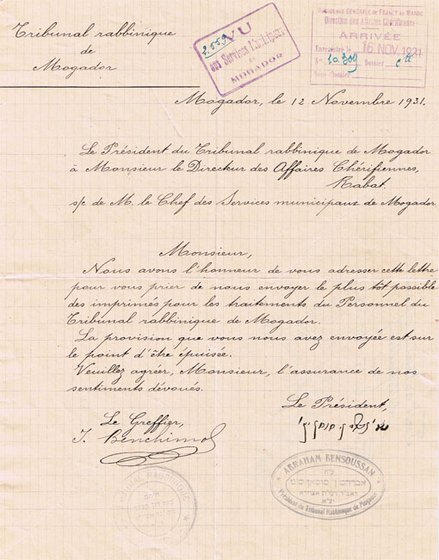 Tribunal rabbinique
de
Mogador
VU
aux Services Municipaux
de
MOGADOR
RESIDENCE GENERALE DE FRANCE AU MAROC
Direction des Affaires Chérifiennes
ARRIVÉE
Enregistré le 16 NOV 1931
Mogador, le 12 Novembre 1931.
Le Président du Tribunal rabbinique de Mogador
à Monsieur le Directeur des Affaires Chérifiennes,
Rabat.
s/c de M. le Chef des Services municipaux de Mogador
Monsieur,
Nous avons l'honneur de vous adresser cette lettre
pour vous prier de nous envoyer le plus tôt possible
des imprimés pour les traitements du Personnel du
Tribunal rabbinique de Mogador.
La provision que vous nous avez envoyée est sur
le point d'être épuisée.
Veuillez agréer, Monsieur, l'assurance de nos
sentiments dévoués.
Le Greffier,
J. Benchimol
Le Président,
ABRAHAM BENSOUSSAN
Président du Tribunal Rabbinique de Mogador